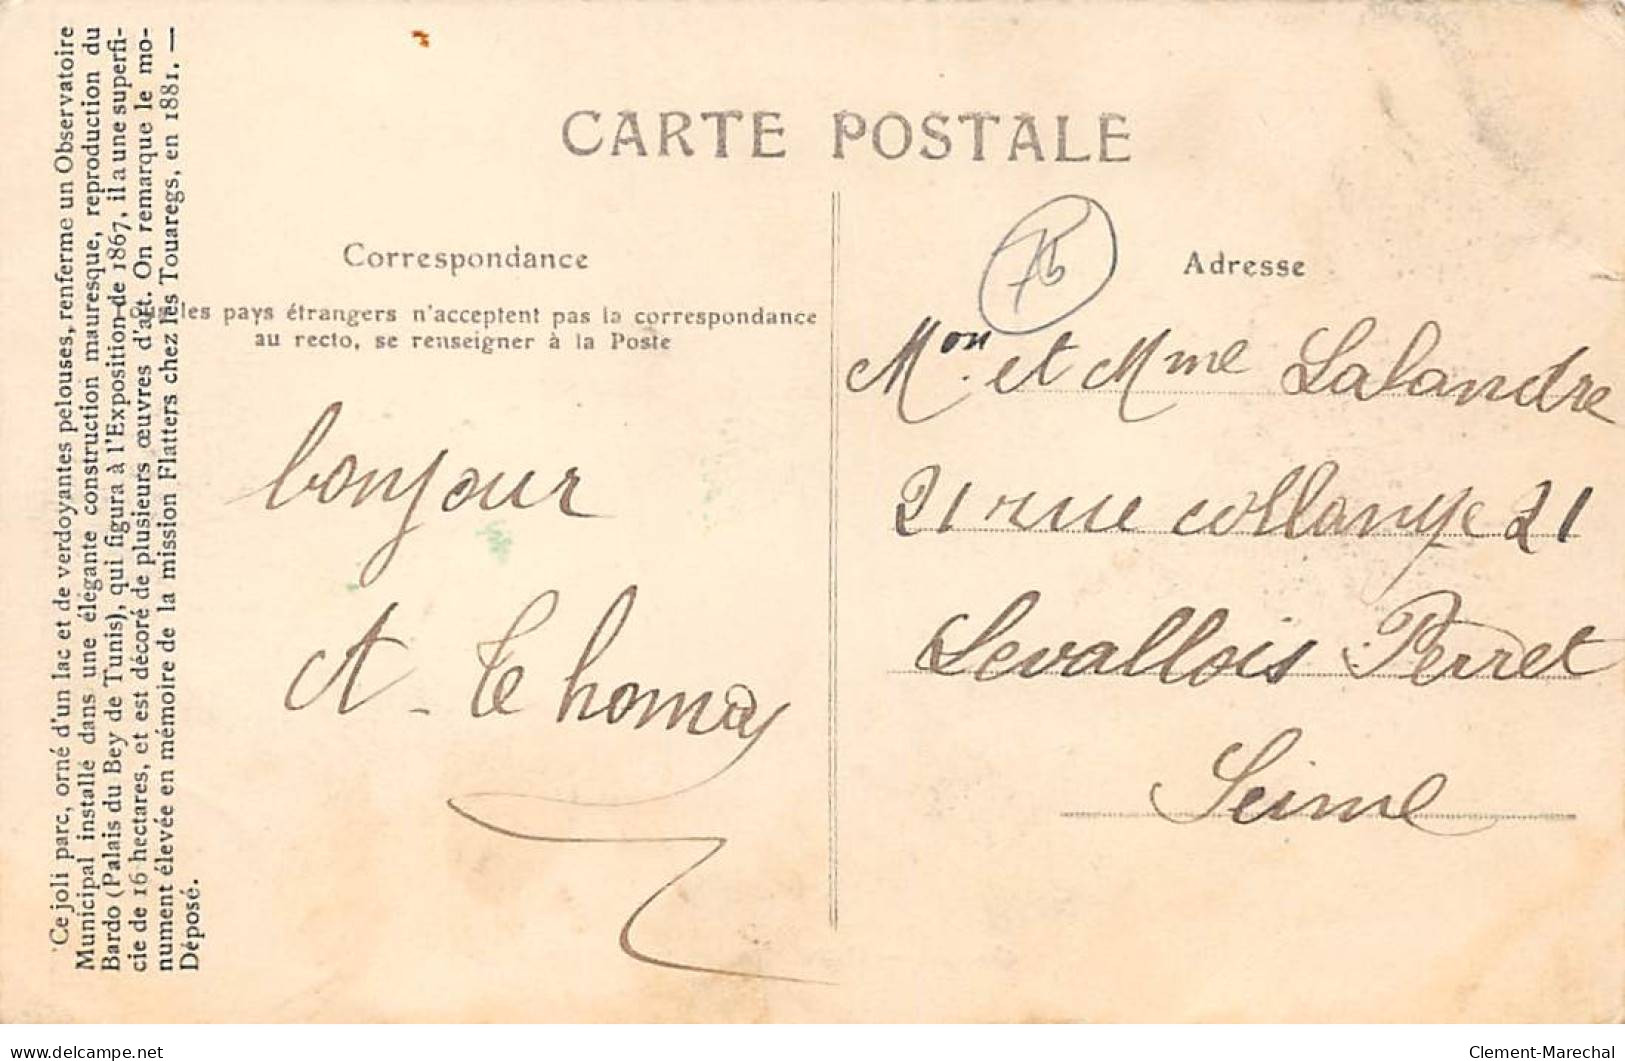 Ce joli parc, orné d'un lac et de verdoyantes pelouses, renferme un Observatoire
Municipal installé dans une élégante construction mauresque, reproduction du
Bardo (Palais du Bey de Tunis), qui figura à l'Exposition de 1867, il a une superfi-
cie de 16 hectares, et est décoré de plusieurs œuvres d'art. On remarque le mo-
nument élevée en mémoire de la mission Flatters chez les Touaregs, en 1881. —
Déposé.
CARTE POSTALE
Correspondance
les pays étrangers n'acceptent pas la correspondance
au recto, se renseigner à la Poste
bonjour
A. Thomas
75
Adresse
Mon et Mme Lalandre
21 rue collange 21
Levallois Perret
Seine
delcampe.net
Clement-Marechal